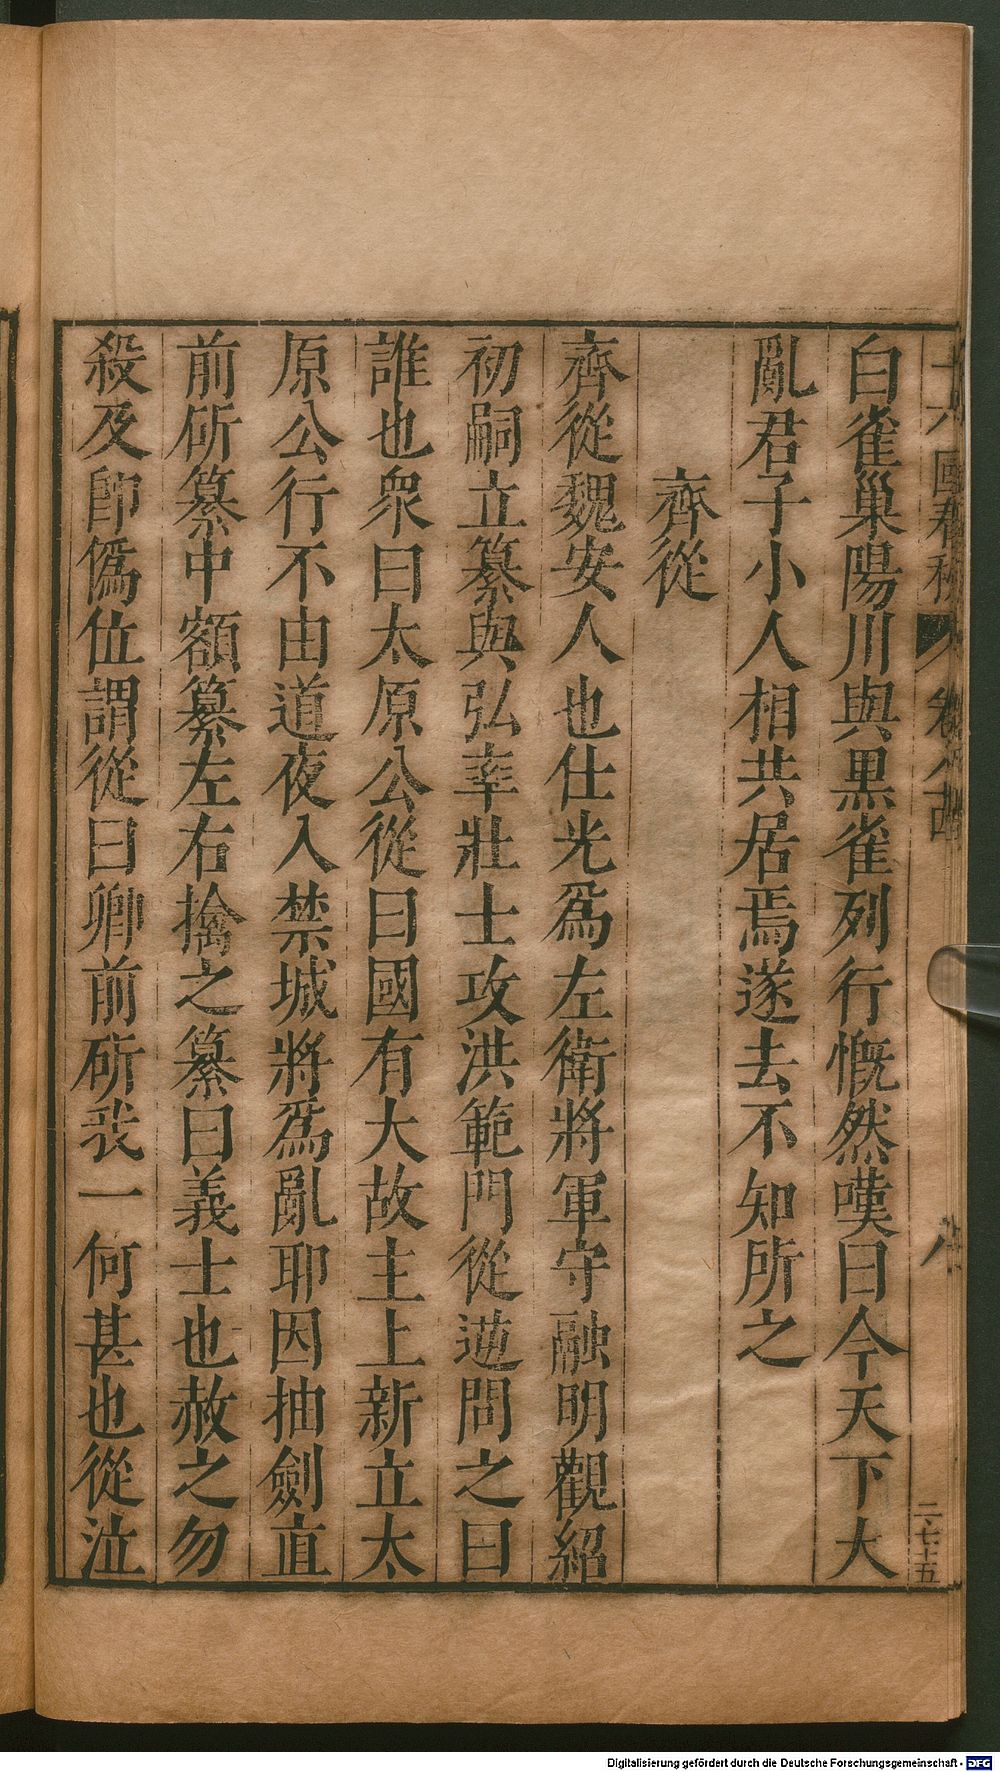 白雀巢陽川與黑雀列行慨然嘆曰今天下大
亂君子小人相共居焉遂去不知所之
齊從
齊從魏安人也仕光爲左衛將軍守融明觀紹
初嗣立纂與弘率壯士攻洪範門從逆問之曰
誰也衆曰太原公從曰國有大故主上新立太
原公行不由道夜入禁城將爲亂耶因抽劍直
前斫纂中額纂左右擒之纂曰義士也赦之勿
殺及卽僞位謂從曰卿前斫我一何甚也從泣
八
二七十五
Digitalisierung gefördert durch die Deutsche Forschungsgemeinschaft - DFG